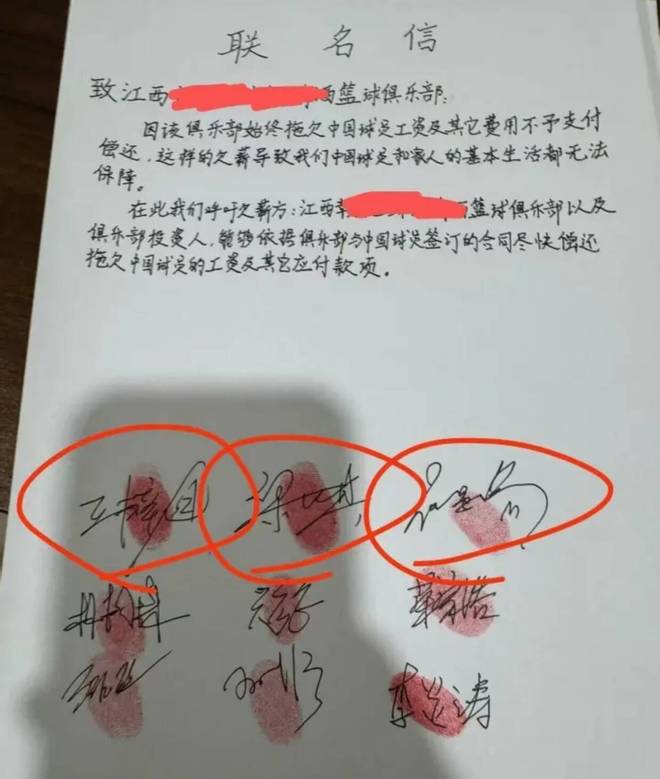 联名信
致江西 西篮球俱乐部:
因该俱乐部始终拖欠中国球员工资及其它费用不予支付
偿还,这样的欠薪导致我们中国球员和家人的基本生活都无法
保障。
在此我们呼吁欠薪方:江西 篮球俱乐部以及
俱乐部投资人,能够依据俱乐部与中国球员签订的合同尽快偿还
拖欠中国球员的工资及其它应付款项。